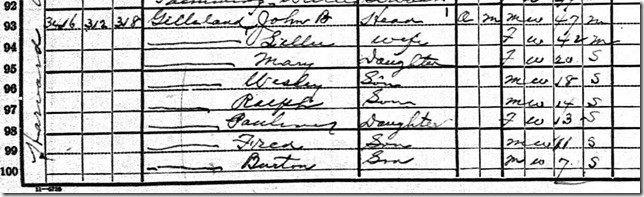 92
93 3416 312 318 Gilleland John B Head O M M W 47 M
94 — Lillie Wife F W 42 M
95 — Mary Daughter F W 20 S
96 — Wesley Son M W 18 S
97 — Ralph Son M W 14 S
98 — Pauline Daughter F W 13 S
99 — Fred Son M W 11 S
100 — Burton Son M W 7 S
Harvard